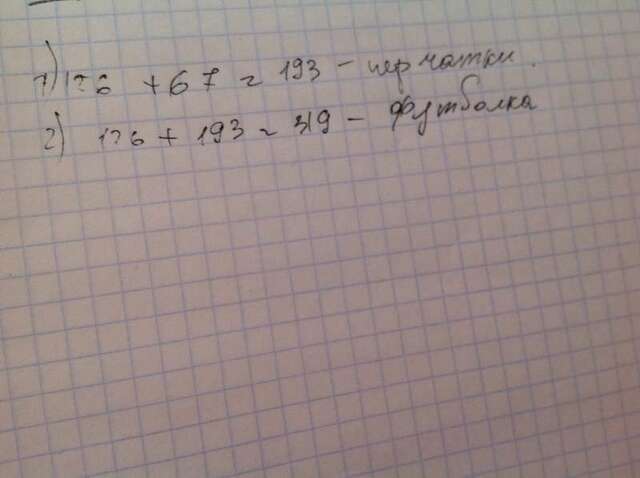 1) 126 + 67 = 193 - перчатки.
2) 126 + 193 = 319 - футболка